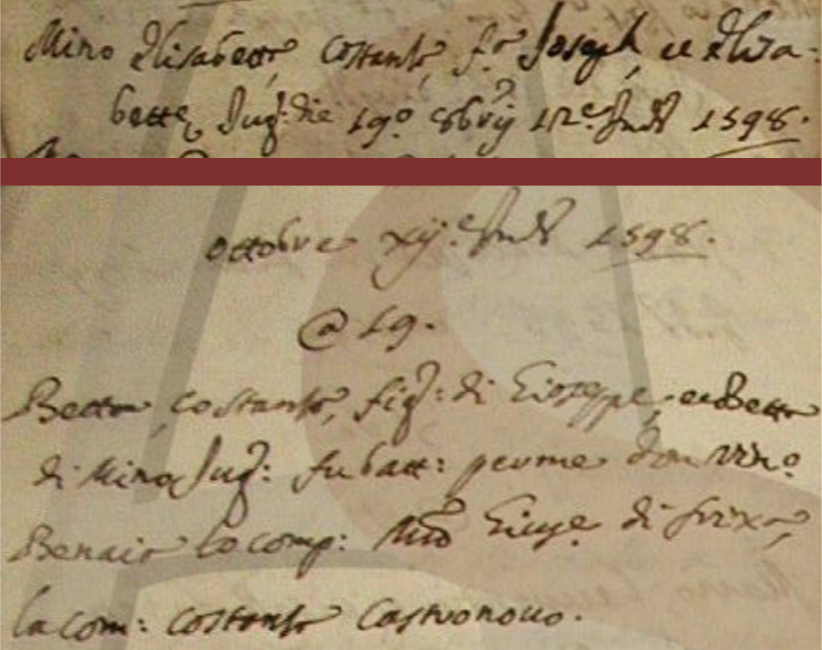 Mino Elisabetta Costanza f.a Joseph et Elisa=
bette Jug: die 19.o 8bris 12.e Ind. 1598.
Ottobre xij.e Ind. 1598.
@ 19.
Betta, Costanza, fig: di Gioseppe, et Betta
di Mino Jug: fu batt: per me don Vinc.o
lo comp: di
la com: Costanza Castronouo.